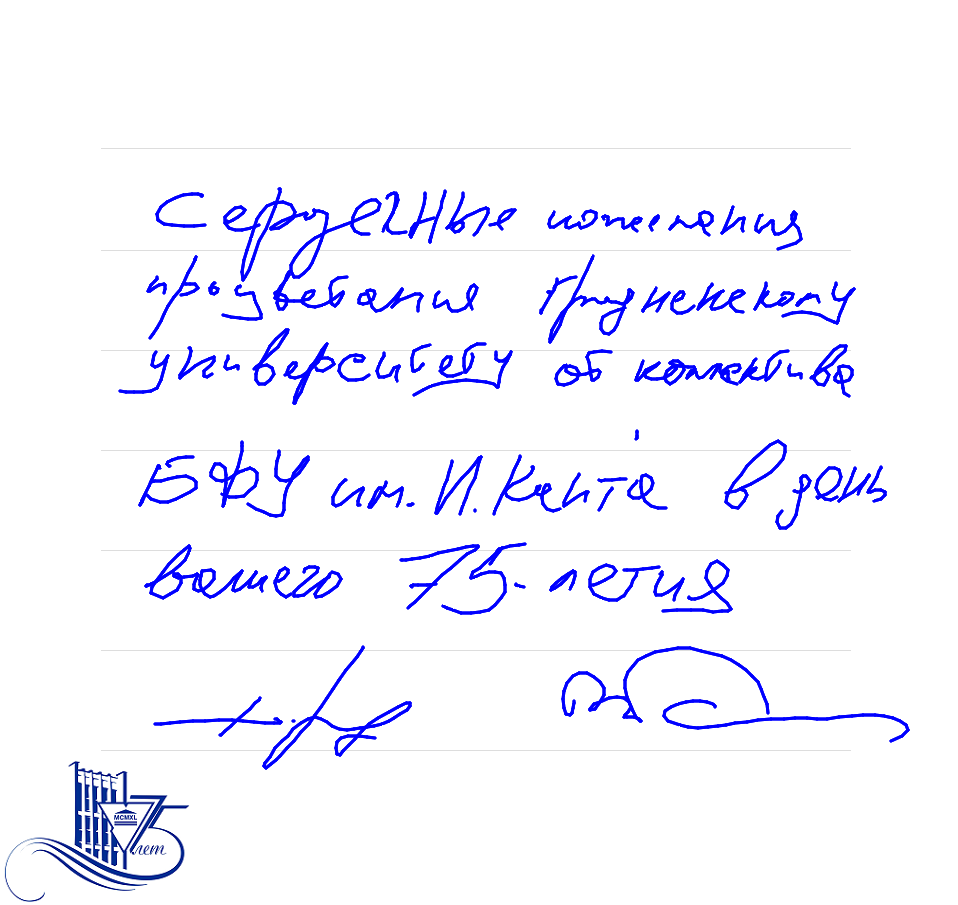 Сердечные пожелания
процветания Гродненскому
университету от коллектива
БФУ им. И. Канта в день
вашего 75-летия
MCMXL
75 лет